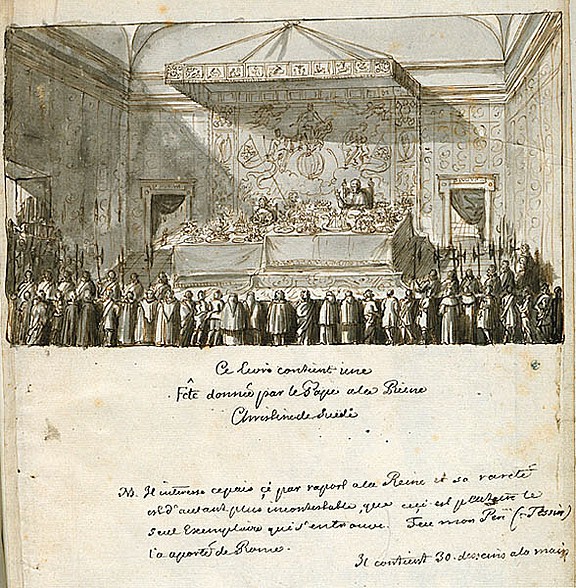 Ce livre contient une
Fête donnée par le Pape a la Reine
Christine de Suéde
NB. Il interesse cepais çé par raport a la Reine et sa rareté
est d'autant plus incontestable, que ceçi est le
seul Exemplaire qui s'en trouve. Feu mon Peri (:Tessin)
l'a aporté de Rome.
Il contient 30. desseins a la main